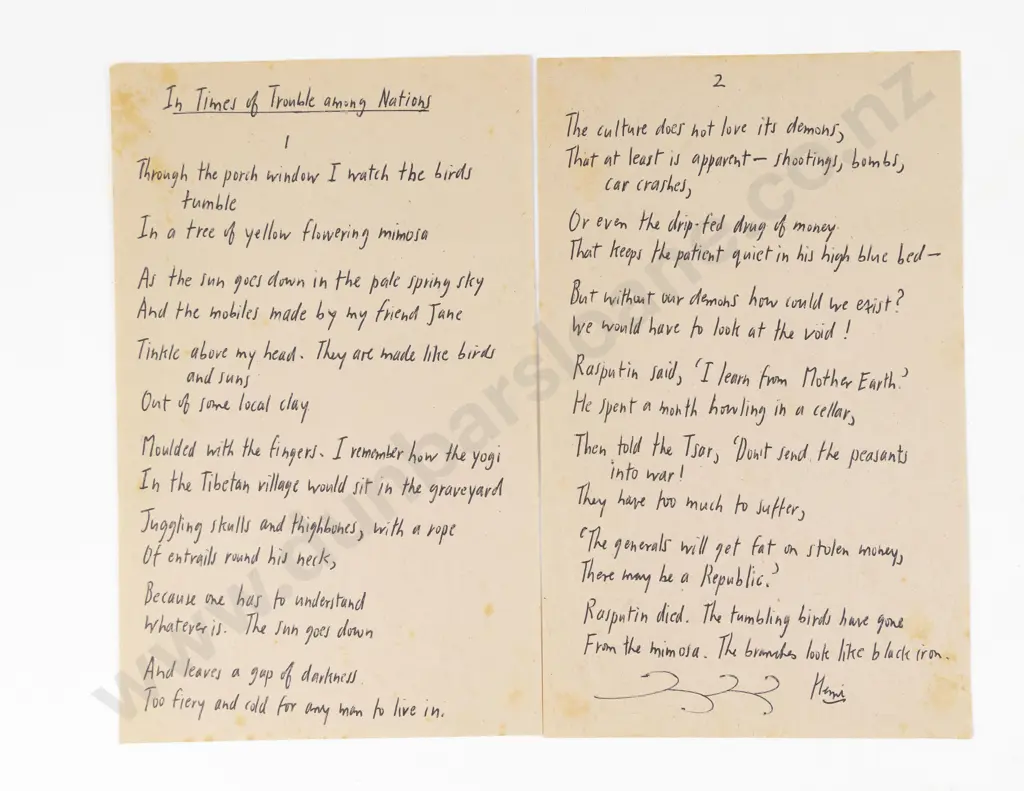 In Times of Trouble among Nations
1
Through the porch window I watch the birds
tumble
In a tree of yellow flowering mimosa
As the sun goes down in the pale spring sky
And the mobiles made by my friend Jane
Tinkle above my head. They are made like birds
and suns
Out of some local clay
Moulded with the fingers. I remember how the yogi
In the Tibetan village would sit in the graveyard
Juggling skulls and thighbones, with a rope
Of entrails round his neck,
Because one has to understand
Whatever is. The sun goes down
And leaves a gap of darkness
Too fiery and cold for any man to live in.
2
The culture does not love its demons,
That at least is apparent — shootings, bombs,
car crashes,
Or even the drip-fed drug of money
That keeps the patient quiet in his high blue bed —
But without our demons how could we exist?
We would have to look at the void!
Rasputin said, 'I learn from Mother Earth.'
He spent a month howling in a cellar,
Then told the Tsar, 'Don't send the peasants
into war!
They have too much to suffer,
'The generals will get fat on stolen money,
There may be a Republic.'
Rasputin died. The tumbling birds have gone
From the mimosa. The branches look like black iron.
Hemi
www.dunbarsloane.co.nz